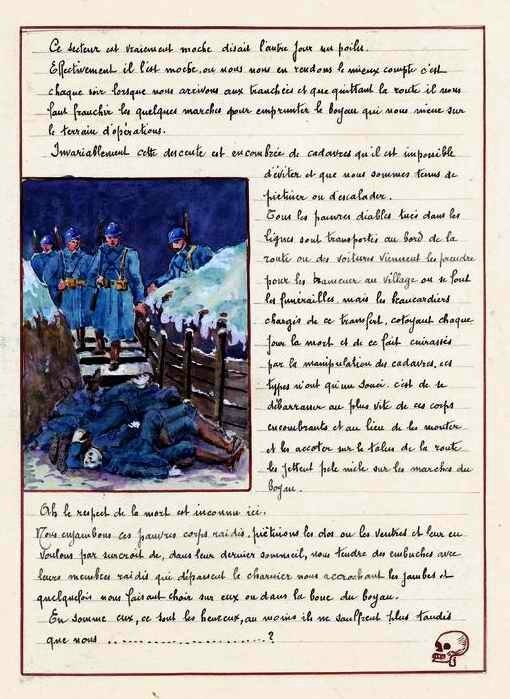 Ce secteur est vraiement moche disait l'autre jour un poilu.
Effectivement il l'est moche, ou nous nous en rendons le mieux compte c'est
chaque soir lorsque nous arrivons aux tranchées et que quittant la route il nous
faut franchir les quelques marches pour emprunter le boyau qui nous mène sur
le terrain d'opérations.
Invariablement cette descente est encombrée de cadavres qu'il est impossible
d'éviter et que nous sommes tenus de
piétiner ou d'escalader.
Tous les pauvres diables tués dans les
lignes sont transportés au bord de la
route ou des voitures viennent les prendre
pour les ramener au village ou se font
les funérailles, mais les brancardiers
chargés de ce transfert, cotoyant chaque
jour la mort et de ce fait cuirassés
par la manipulation des cadavres, ces
types n'ont qu'un souci, c'est de se
débarrasser au plus vite de ces corps
encombrants et au lieu de les monter
et les accoter sur le talus de la route
les jettent pele mêle sur les marches du
boyau.
Ah le respect de la mort est inconnu ici.
Nous enjambons ces pauvres corps raidis, piétinons les dos ou les ventres et leur en
voulons par surcroit de, dans leur dernier sommeil, nous tendre des embuches avec
leurs membres raidis qui dépassent le charnier nous accrochant les jambes et
quelquefois nous faisant choir sur eux ou dans la boue du boyau.
En somme eux, ce sont les heureux, au moins ils ne souffrent plus tandis
que nous ..........................?